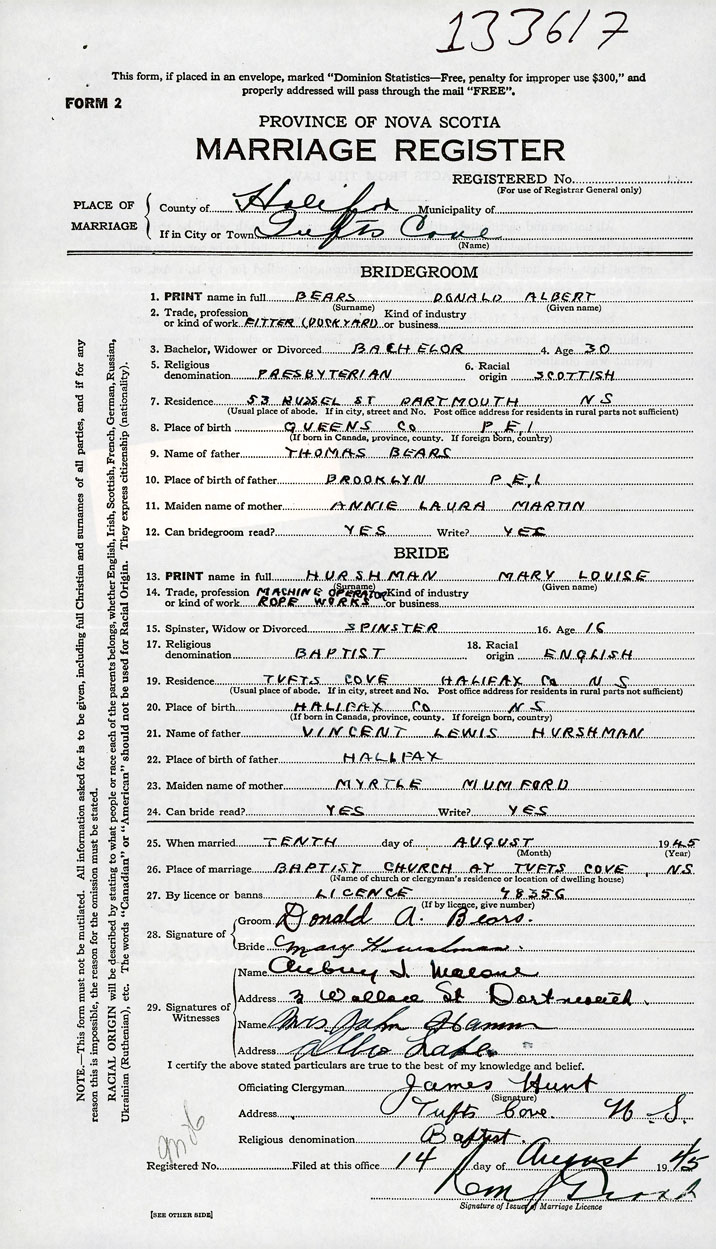 133617
This form, if placed in an envelope, marked "Dominion Statistics—Free, penalty for improper use $300," and
properly addressed will pass through the mail "FREE".
FORM 2
PROVINCE OF NOVA SCOTIA
MARRIAGE REGISTER
REGISTERED No.
(For use of Registrar General only)
PLACE OF MARRIAGE
County of Halifax Municipality of
If in City or Town Tufts Cove
(Name)
BRIDEGROOM
1. PRINT name in full BEARS DONALD ALBERT
(Surname) (Given name)
2. Trade, profession Kind of industry
or kind of work FITTER (DOCKYARD) or business
3. Bachelor, Widower or Divorced BACHELOR 4. Age 30
5. Religious 6. Racial
denomination PRESBYTERIAN origin SCOTTISH
7. Residence 53 RUSSEL ST DARTMOUTH N S
(Usual place of abode. If in city, street and No. Post office address for residents in rural parts not sufficient)
8. Place of birth QUEENS CO P.E.I
(If born in Canada, province, county. If foreign born, country)
9. Name of father THOMAS BEARS
10. Place of birth of father BROOKLYN P.E.I
11. Maiden name of mother ANNIE LAURA MARTIN
12. Can bridegroom read? YES Write? YES
BRIDE
13. PRINT name in full HURSHMAN MARY LOUISE
(Surname) (Given name)
14. Trade, profession MACHINE OPERATOR Kind of industry
or kind of work ROPE WORKS or business
15. Spinster, Widow or Divorced SPINSTER 16. Age 16
17. Religious 18. Racial
denomination BAPTIST origin ENGLISH
19. Residence TUFTS COVE HALIFAX CO N S
(Usual place of abode. If in city, street and No. Post office address for residents in rural parts not sufficient)
20. Place of birth HALIFAX CO N S
(If born in Canada, province, county. If foreign born, country)
21. Name of father VINCENT LEWIS HURSHMAN
22. Place of birth of father HALIFAX
23. Maiden name of mother MYRTLE MUMFORD
24. Can bride read? YES Write? YES
25. When married TENTH day of AUGUST 1945
(Month) (Year)
26. Place of marriage BAPTIST CHURCH AT TUFTS COVE N.S.
(Name of church or clergyman's residence or location of dwelling house)
27. By licence or banns LICENCE 98356
(If by licence, give number)
28. Signature of
Groom Donald A. Bears.
Bride Mary Hurshman.
29. Signatures of Witnesses
Name Aubrey Malone
Address 3 Wallace St Dartmouth.
Name Mrs John Hamm
Address Albro Lake
I certify the above stated particulars are true to the best of my knowledge and belief.
Officiating Clergyman James Hunt
(Signature)
Address Tufts Cove N. S.
Religious denomination Baptist.
Registered No. Filed at this office 14 day of August 1945
Signature of Issuer of Marriage Licence
[SEE OTHER SIDE]
NOTE.—This form must not be mutilated. All information asked for is to be given, including full Christian and surnames of all parties, and if for any
reason this is impossible, the reason for the omission must be stated.
RACIAL ORIGIN will be described by stating to what people or race each of the parents belongs, whether English, Irish, Scottish, French, German, Russian,
Ukrainian (Ruthenian), etc. The words "Canadian" or "American" should not be used for Racial Origin. They express citizenship (nationality).